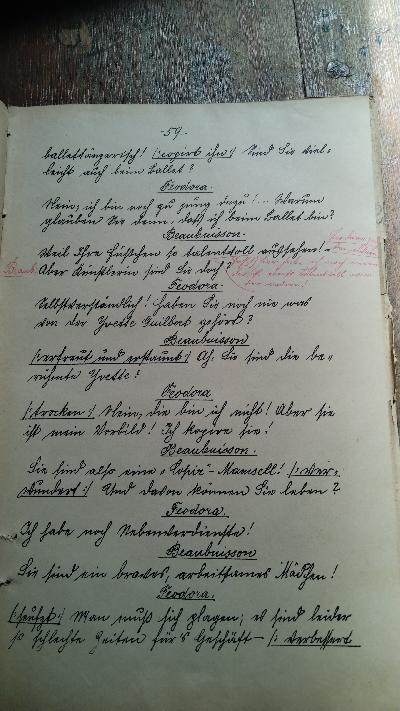 -59-
ballettängerisch! /:kopirt ihn:/ Und Sie viel-
leicht auch beim Ballet?
Feodora.
Nein, ich bin noch zu jung dazu!... Warum
glauben Sie denn, daß ich beim Ballet bin?
Beaubuisson.
Weil Ihre Füßchen so talentvoll aussehen! -
Beaub. Aber Künstlerin sind Sie doch?
Feodora.
Selbstverständlich! Haben Sie noch nie was
von der Yvette Guilbert gehört?
Beaubuisson
/:erfreut und erstaunt:/ Ah, Sie sind die be-
rühmte Yvette?
Feodora
/:trocken:/ Nein, die bin ich nicht! Aber sie
ist mein Vorbild! Ich kopire sie!
Beaubuisson.
Sie sind also eine "Copir"-Mamsell! /:ver-
wundert:/ Und davon können Sie leben?
Feodora.
Ich habe noch Nebenverdienste!
Beaubuisson
Sie sind ein braves, arbeitsames Mädchen!
Feodora.
/:seufzt:/ Man muß sich plagen; es sind leider
so schlechte Zeiten für's Geschäft - /: verbessert